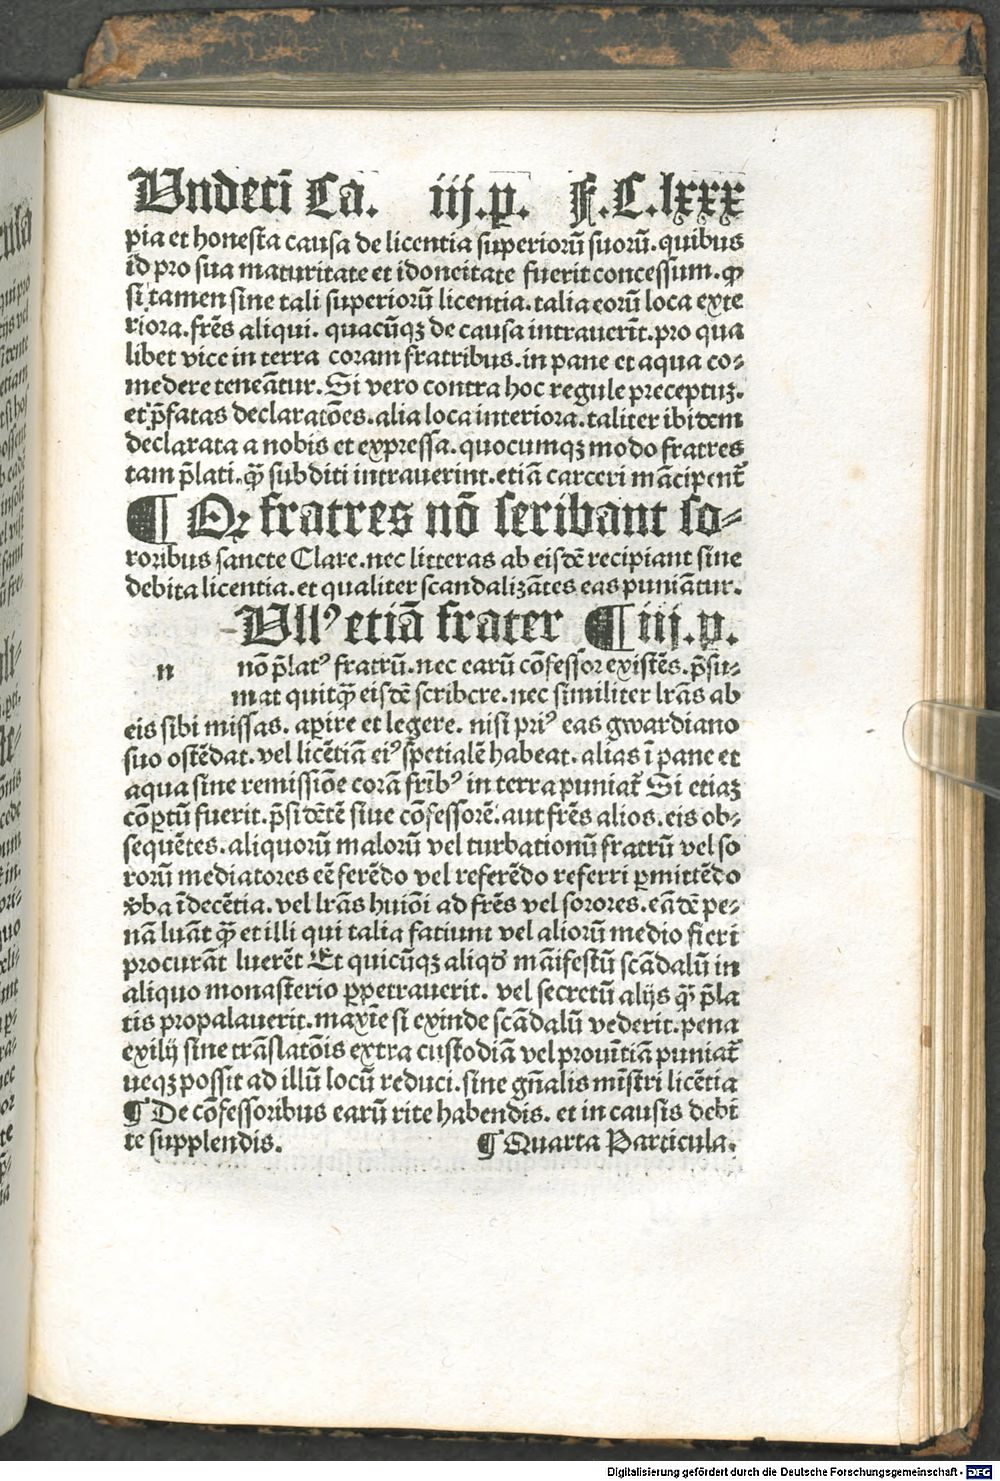 Undeci̅ Ca. iij.p. F.C.lxxx
pia et honesta causa de licentia superioru̅ suoru̅. quibus
id pro sua maturitate et idoneitate fuerit concessum. ꝙ
si tamen sine tali superioru̅ licentia. talia eoru̅ loca exte
riora. fre̅s aliqui. quacu̅qꝫ de causa intraueri̅t. pro qua
libet vice in terra coram fratribus. in pane et aqua co⸗
medere tenea̅tur. Si vero contra hoc regule preceptuꝫ.
et p̅fatas declarato̅es. alia loca interiora. taliter ibidem
declarata a nobis et expressa. quocumqꝫ modo fratres
tam p̅lati. qꝫ̅ subditi intrauerint. etia̅ carceri ma̅cipent᷑
¶ Qꝫ fratres no̅ scribant so⸗
roribus sancte Clare. nec litteras ab eisde̅ recipiant sine
debita licentia. et qualiter scandaliza̅tes eas punia̅tur.
Ullꝰ etia̅ frater ¶ iij.p.
n no̅ p̅latꝰ fratru̅. nec earu̅ co̅fessor existe̅s. p̅su⸗
mat quitqꝫ̅ eisde̅ scribere. nec similiter lr̅as ab
eis sibi missas. aꝑire et legere. nisi priꝰ eas gwardiano
suo oste̅dat. vel lice̅tia̅ eiꝰ spetiale̅ habeat. alias i̅ pane et
aqua sine remissio̅e cora̅ fri̅bꝰ in terra puniat᷑ Si etiaꝫ
co̅ꝑtu̅ fuerit. p̅side̅te̅ siue co̅fessore̅. aut fre̅s alios. eis ob⸗
seque̅tes. aliquoru̅ maloru̅ vel turbationu̅ fratru̅ vel so
roru̅ mediatores ee̅ fere̅do vel refere̅do referri ꝑmitte̅do
v̾ba i̅dece̅tia. vel lr̅as huio̅i ad fre̅s vel sorores. ea̅de̅ pe⸗
na̅ lua̅t qꝫ̅ et illi qui talia fatiunt vel alioru̅ medio fieri
procura̅t luere̅t Et quicu̅qꝫ aliqd̾ ma̅ifestu̅ sca̅dalu̅ in
aliquo monasterio ꝑpetrauerit. vel secretu̅ alijs qꝫ̅ p̅la
tis propalauerit. maxi̅e si exinde sca̅dalu̅ vederit. pena
exilij sine tra̅slato̅is extra custodia̅ vel proui̅tia̅ puniat᷑
ueqꝫ possit ad illu̅ locu̅ reduci. sine gn̅alis mi̅stri lice̅tia
¶ De co̅fessoribus earu̅ rite habendis. et in causis debi
te supplendis. ¶ Quarta Particula.
Digitalisierung gefördert durch die Deutsche Forschungsgemeinschaft - DFG